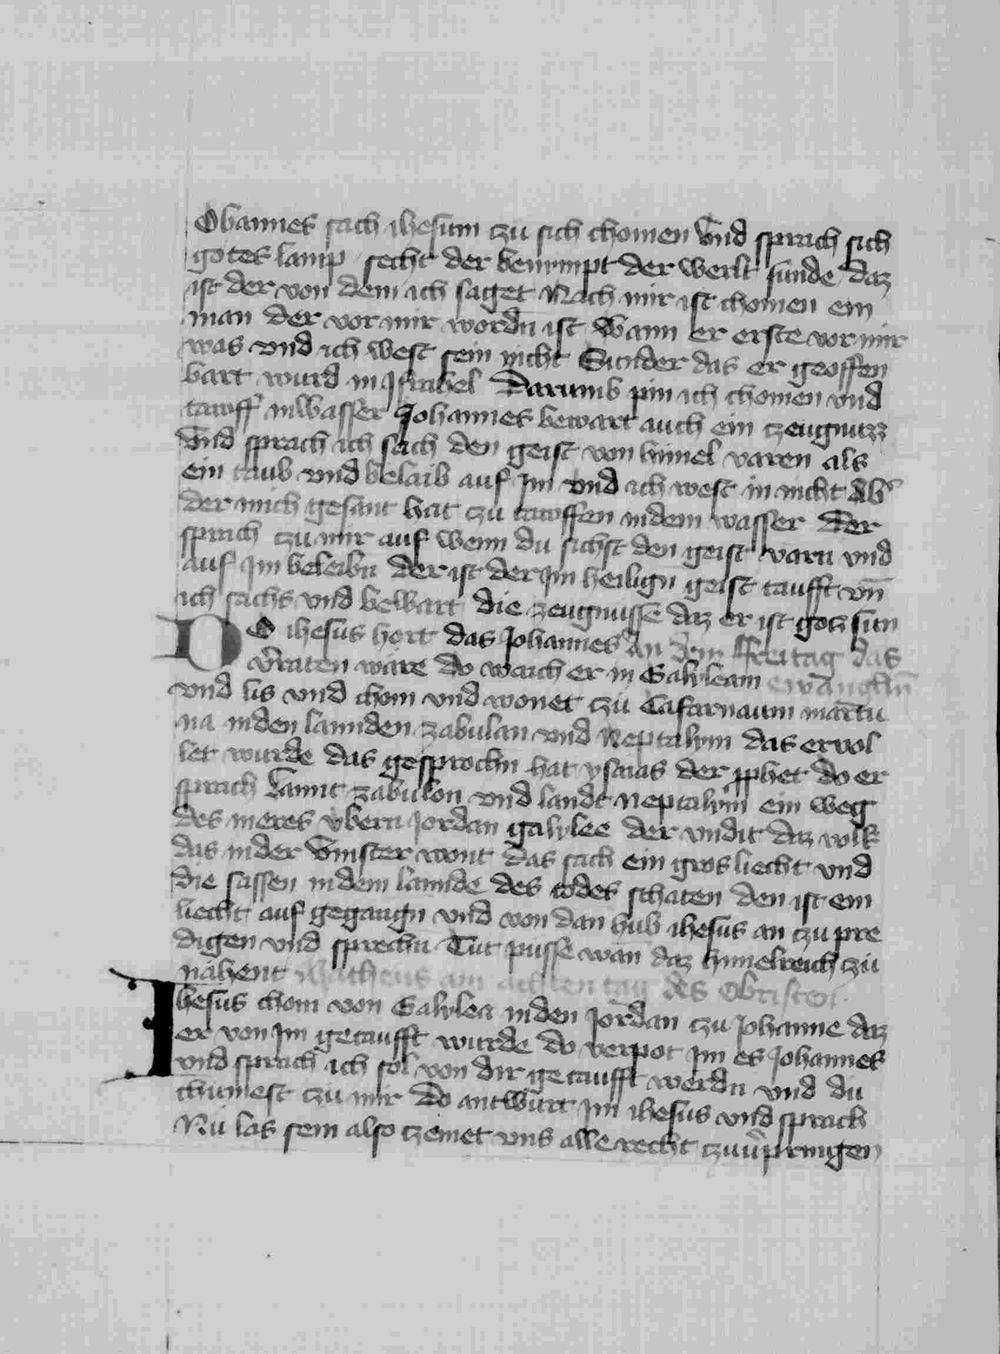 Ohannes sach ihesum czu sich chomen Vnd sprach sich
gotes lamp secht der benympt der werlt sunde daz
ist der von dem ich saget Nach mir ist chomen ein
man der vor mir wordn ist Wann er erste vor mir
was vnd ich west sein nicht Sunder das er geoffen
bart wurd in Israhel Darumb pin ich chomen vnd
tawff in wasser Johannes bewart auch ein czeugnuzz
Vnd sprach ich sach den geist von himel varen als
ein taub vnd belaib auf Im vnd ich west in nicht Ab᾽
der mich gesant hat czu tawffen in dem wasser der
sprach czu mir auf wenn du sichst den geist varn vnd
auf Im beleibn der ist der Im heilign geist taufft vn̄
ich sachs vnd bewart die zeugnusse daz er ist gotz sun
DO ihesus hort das Johannes An dem ffreitag das
v᾽raten wäre do waich er in Galyleam ewangeliū
vnd lis vnd chom vnd wonet czu Cafarnaum maritu
na in den lannden zabulan vnd Neptalym das ervol
let wurde das gesprochn hat ysaias der p̱phet do er
sprach Lannt zabulon vnd landt neptalym ein weg
des meres vbern Jordan galylee der vndit daz volk
das in der vinster wont das sach ein gros liecht vnd
die sassen in dem lannde des todes schaten den ist ein
liecht auf gegangn vnd von dan hub ihesus an czu pre
digen vnd sprechn Tut pusse wan daz himelreich czu
nahent Matheus am achten tag des Obristen
Ihesus chom von Galylea in den Jordan czu Johanne daz
er von Im getaufft wurde do verpot Im es Johannes
vnd sprach ich sol von dir getaufft werdn vnd du
chumest czu mir Do antwurt Im ihesus vnd sprach
Nu las sein also czemet vns alle recht czu v᾽pringen